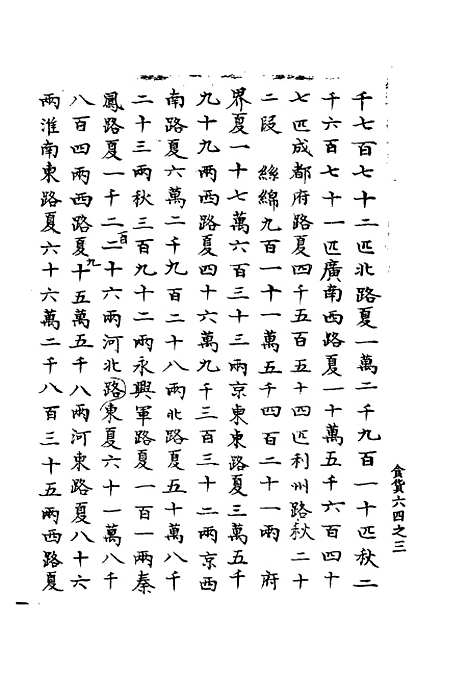 千七百七十二匹北路夏一萬二千九百一十匹秋二
千六百七十一匹廣南西路夏一十萬五千六百四十
七匹成都府路夏四千五百五十四匹利州路秋二十
二段　絲綿九百一十一萬五千四百二十一兩　府
界夏一十七萬六百三十三兩京東東路夏三萬五千
九十九兩西路夏四十六萬九千三百三十二兩京西
南路夏六萬二千九百二十八兩北路夏五十萬八千
二十三兩秋三百九十二兩永興軍路夏一百一兩秦
鳳路夏一千二百二十六兩河北路東夏六十一萬八千
八百四兩西路夏九十五萬五千八兩河東路夏八十六
兩淮南東路夏六十六萬二千八百三十五兩西路夏
食貨六四之三